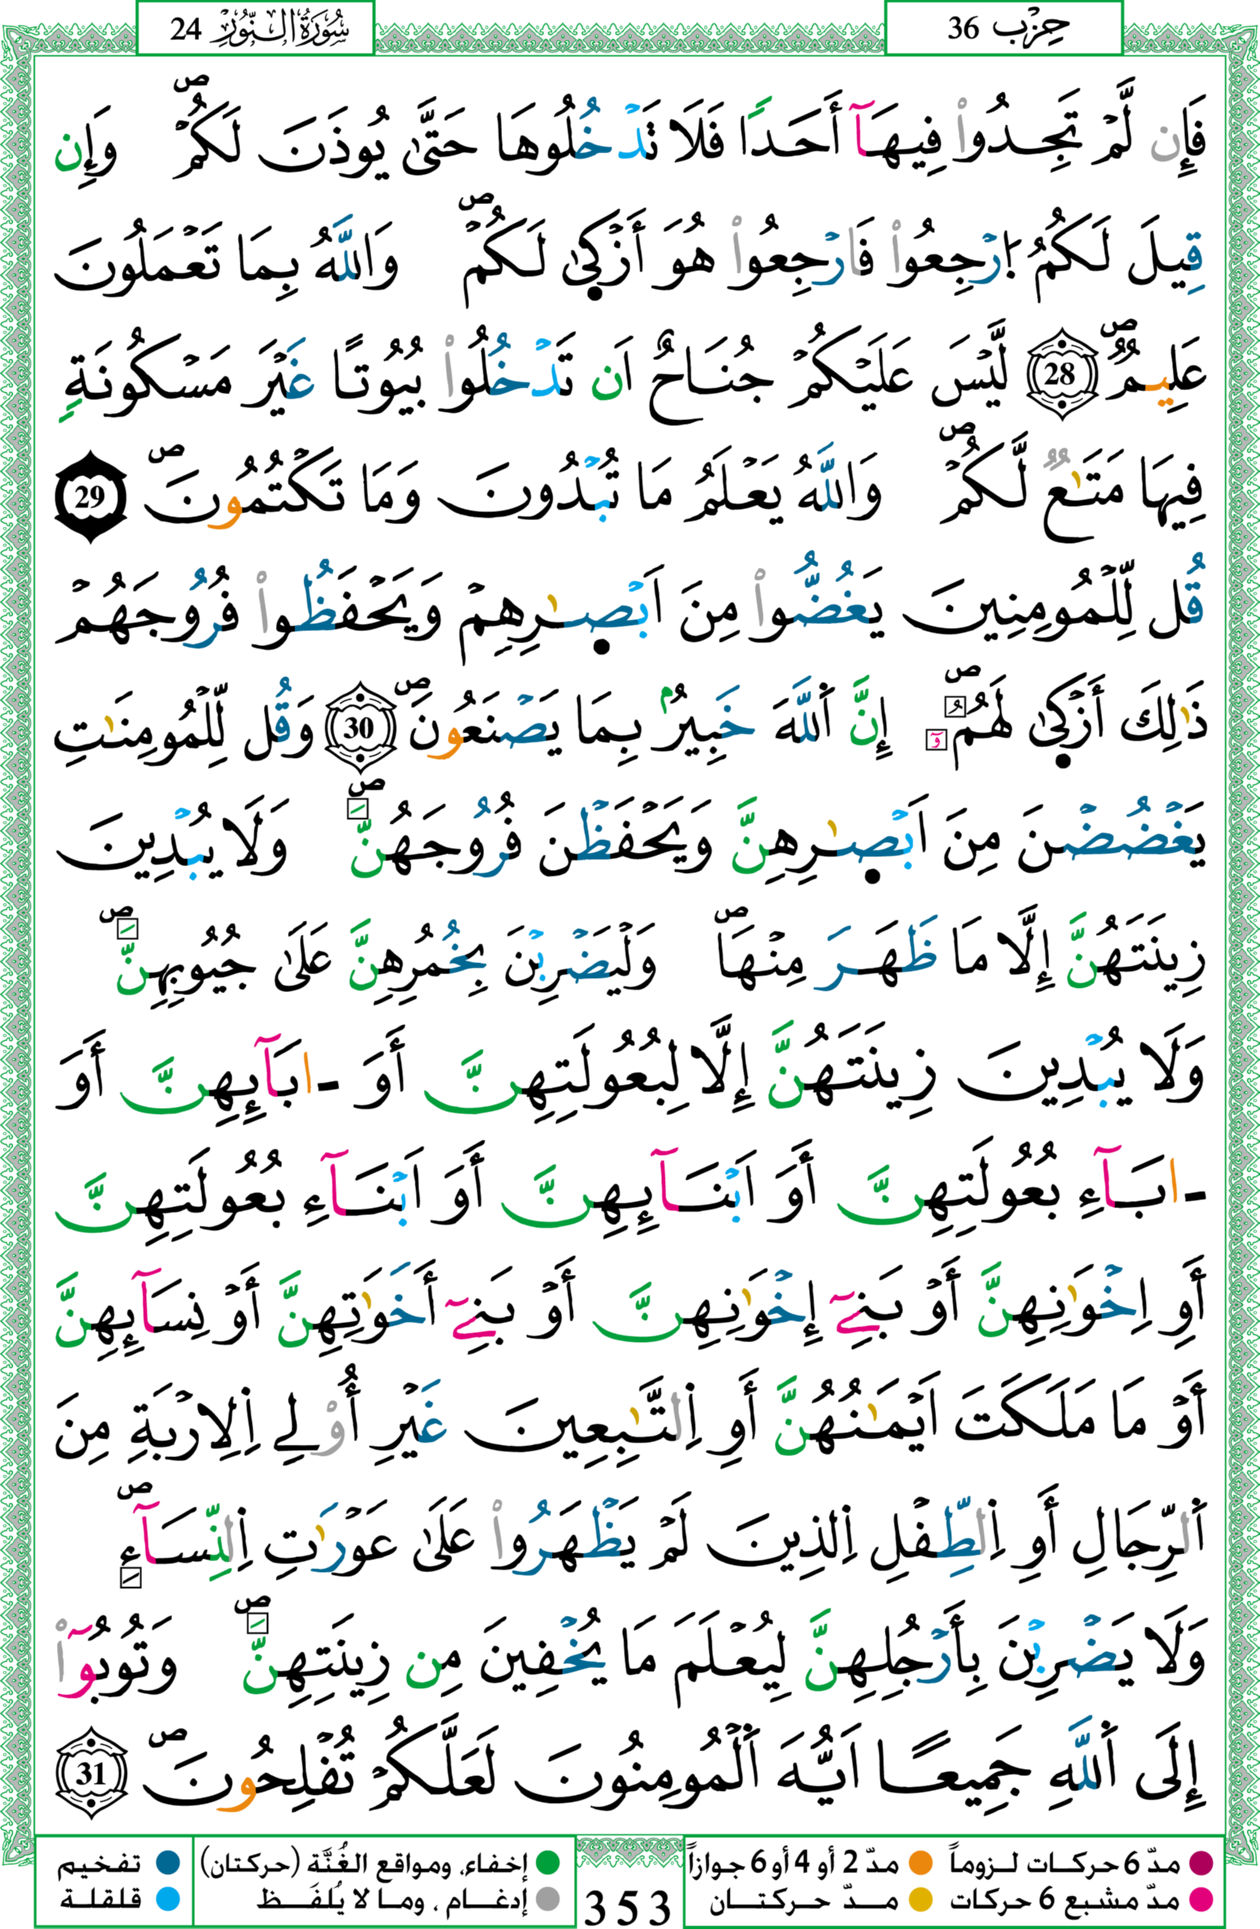 حِزْب 36
سُورَةُ النُّورِ 24
فَإِن لَّمْ تَجِدُواْ فِيهَآ أَحَدًا فَلَا تَدْخُلُوهَا حَتَّىٰ يُوذَنَ لَكُمْ ۖ وَإِن
قِيلَ لَكُمُ اُ۪رْجِعُواْ فَارْجِعُواْ هُوَ أَزْك۪ىٰ لَكُمْ ۖ وَاللَّهُ بِمَا تَعْمَلُونَ
عَلِيمٌ ۖ 28 لَّيْسَ عَلَيْكُمْ جُنَاحٌ اَن تَدْخُلُواْ بُيُوتًا غَيْرَ مَسْكُونَةٍ
فِيهَا مَتَٰعٌ لَّكُمْ ۖ وَاللَّهُ يَعْلَمُ مَا تُبْدُونَ وَمَا تَكْتُمُونَ ۖ 29
قُل لِّلْمُومِنِينَ يَغُضُّواْ مِنَ اَبْصٰ۪رِهِمْ وَيَحْفَظُواْ فُرُوجَهُمْ
ذَٰلِكَ أَزْك۪ىٰ لَهُمُۥٓ ۖ إِنَّ اَ۬للَّهَ خَبِيرُۢ بِمَا يَصْنَعُونَ ۖ 30 وَقُل لِّلْمُومِنَٰتِ
يَغْضُضْنَ مِنَ اَبْصٰ۪رِهِنَّ وَيَحْفَظْنَ فُرُوجَهُنَّ ۖ وَلَا يُبْدِينَ
زِينَتَهُنَّ إِلَّا مَا ظَهَرَ مِنْهَا ۖ وَلْيَضْرِبْنَ بِخُمُرِهِنَّ عَلَىٰ جُيُوبِهِنَّ ۖ
وَلَا يُبْدِينَ زِينَتَهُنَّ إِلَّا لِبُعُولَتِهِنَّ أَوَ ـ ابَآئِهِنَّ أَوَ
ـ ابَآءِ بُعُولَتِهِنَّ أَوَ اَبْنَآئِهِنَّ أَوَ اَبْنَآءِ بُعُولَتِهِنَّ
أَوِ اِخْوَٰنِهِنَّ أَوْ بَنِےٓ إِخْوَٰنِهِنَّ أَوْ بَنِےٓ أَخَوَٰتِهِنَّ أَوْ نِسَآئِهِنَّ
أَوْ مَا مَلَكَتَ اَيْمَٰنُهُنَّ أَوِ اِ۬لتَّٰبِعِينَ غَيْرِ أُوْلِے اِ۬لِارْبَةِ مِنَ
اَ۬لرِّجَالِ أَوِ اِ۬لطِّفْلِ اِ۬لذِينَ لَمْ يَظْهَرُواْ عَلَىٰ عَوْرَٰتِ اِ۬لنِّسَآءِ ۖ
وَلَا يَضْرِبْنَ بِأَرْجُلِهِنَّ لِيُعْلَمَ مَا يُخْفِينَ مِن زِينَتِهِنَّ ۖ وَتُوبُوٓاْ
إِلَى اَ۬للَّهِ جَمِيعًا اَيُّهَ اَ۬لْمُومِنُونَ لَعَلَّكُمْ تُفْلِحُونَ ۖ 31
مدّ 6 حركات لـزوماً مدّ 2 أو 4 أو 6 جوازاً
إخفاء، ومواقع الغُنَّة (حركتان) تفخيم
مدّ مشبع 6 حركات مـدّ حـركتـان
إدغـام ، ومـا لا يُلفَـظ قلقلـة
353